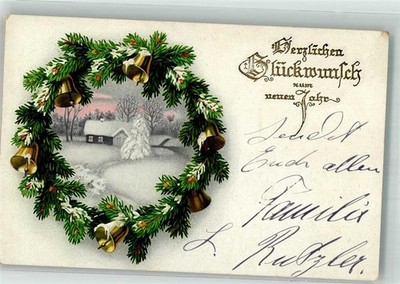 Herzlichen
Glückwunsch
zum
neuen Jahr
sendet
Euch allen
Familie
L. Rutzler.